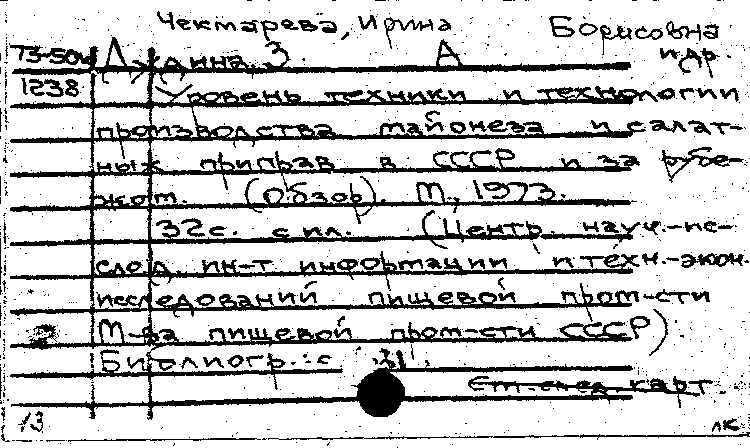 Чектарева, Ирина Борисовна
73-504 Дудина, З. А. и др.
1238 Уровень техники и технологии
производства майонеза и салат-
ных приправ в СССР и за рубе-
жом. (Обзор). М., 1973.
32с. с ил. (Центр. науч.-ис-
след. ин-т информации и техн.-экон.
исследований пищевой пром-сти
М-ва пищевой пром-сти СССР)
Библиогр.: с. 31.
См. след. карт.
13
лк